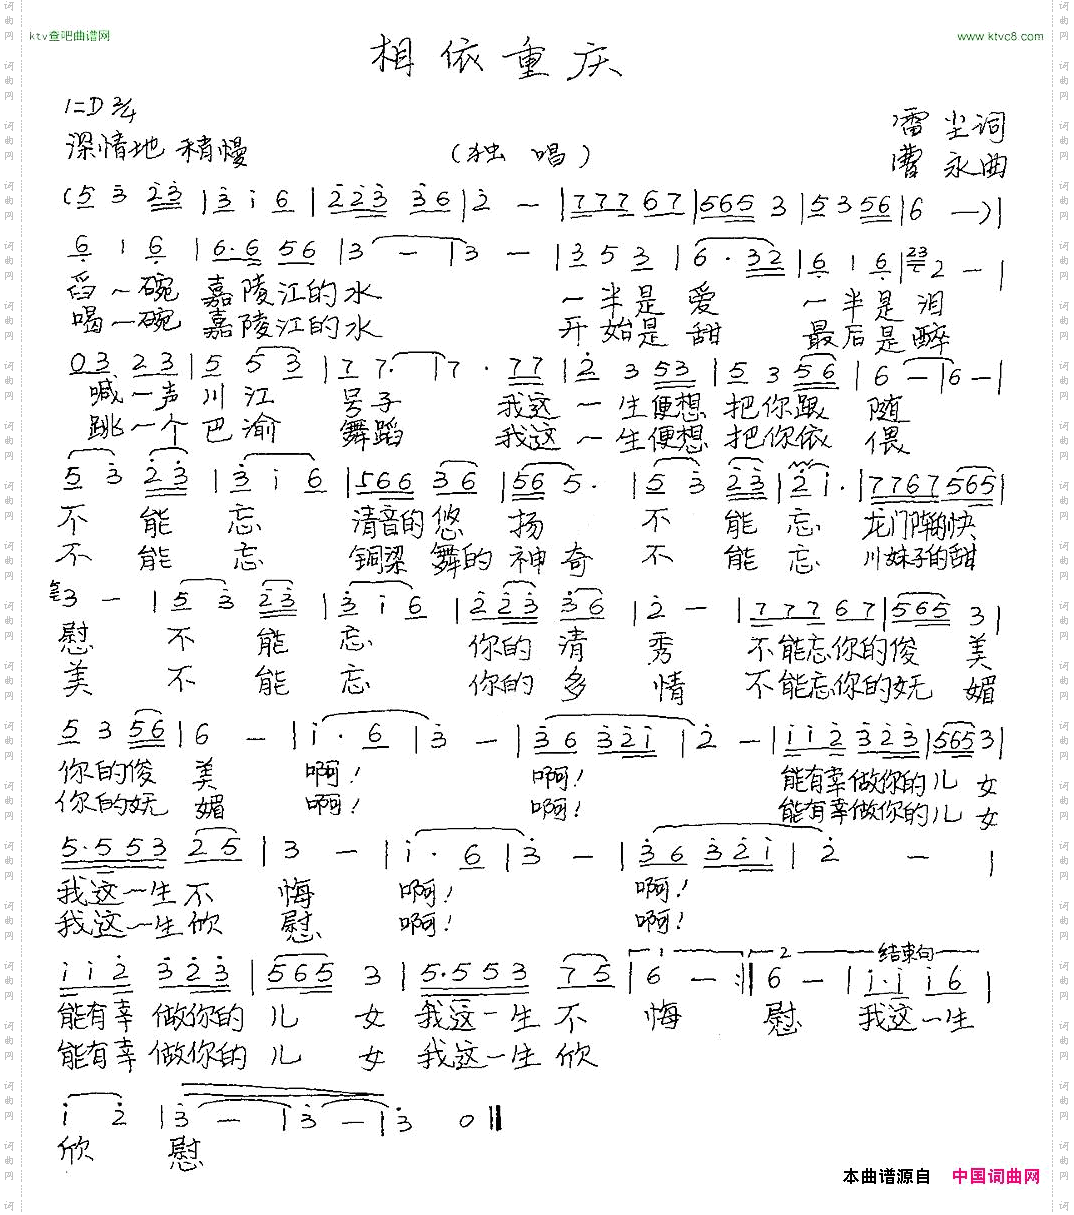 ktv查吧曲谱网
www.ktvc8.com
相依重庆
1=D 2/4
雷尘词
深情地 稍慢
(独唱)
曹永曲
(5 3 2 3 | 3 i 6 | 2 2 3 3 6 | 2 - | 7 7 7 6 7 | 5 6 5 3 | 5 3 5 6 | 6 - ) |
6 1 6 | 6 · 6 5 6 | 3 - | 3 - | 3 5 3 | 6 · 3 2 | 6 1 6 | 23 2 - |
舀一碗 嘉陵江的水 一半是爱 一半是泪
喝一碗 嘉陵江的水 开始是甜 最后是醉
0 3 2 3 | 5 5 3 | 7 7 · | 7 · 7 7 | 2 3 5 3 | 5 3 5 6 | 6 - | 6 - |
喊一声川江 号子 我这一生便想 把你跟随
跳一个巴渝 舞蹈 我这一生便想 把你依偎
5 3 2 3 | 3 i 6 | 5 6 6 3 6 | 5 6 5 · | 5 3 2 3 | 2 i · | 7 7 6 7 5 6 5 |
不能忘 清音的悠扬 不能忘 龙门阵的快
不能忘 铜梁舞的神奇 不能忘 川妹子的甜
3 - | 5 3 2 3 | 3 i 6 | 2 2 3 3 6 | 2 - | 7 7 7 6 7 | 5 6 5 3 |
慰 不能忘 你的清秀 不能忘你的俊美
美 不能忘 你的多情 不能忘你的妩媚
5 3 5 6 | 6 - | i · 6 | 3 - | 3 6 3 2 i | 2 - | i i 2 3 2 3 | 5 6 5 3 |
你的俊美 啊! 啊! 能有幸做你的儿女
你的妩媚 啊! 啊! 能有幸做你的儿女
5 · 5 5 3 2 5 | 3 - | i · 6 | 3 - | 3 6 3 2 i | 2 - |
我这一生不悔 啊! 啊!
我这一生欣慰 啊! 啊!
1 2 结束句
i i 2 3 2 3 | 5 6 5 3 | 5 · 5 5 3 7 5 | 6 - :‖ 6 - | i · i i 6 |
能有幸做你的儿女 我这一生不悔 慰 我这一生
能有幸做你的儿女 我这一生欣
i 2 | 3 - | 3 - | 3 0 ‖
欣慰
本曲谱源自 中国词曲网